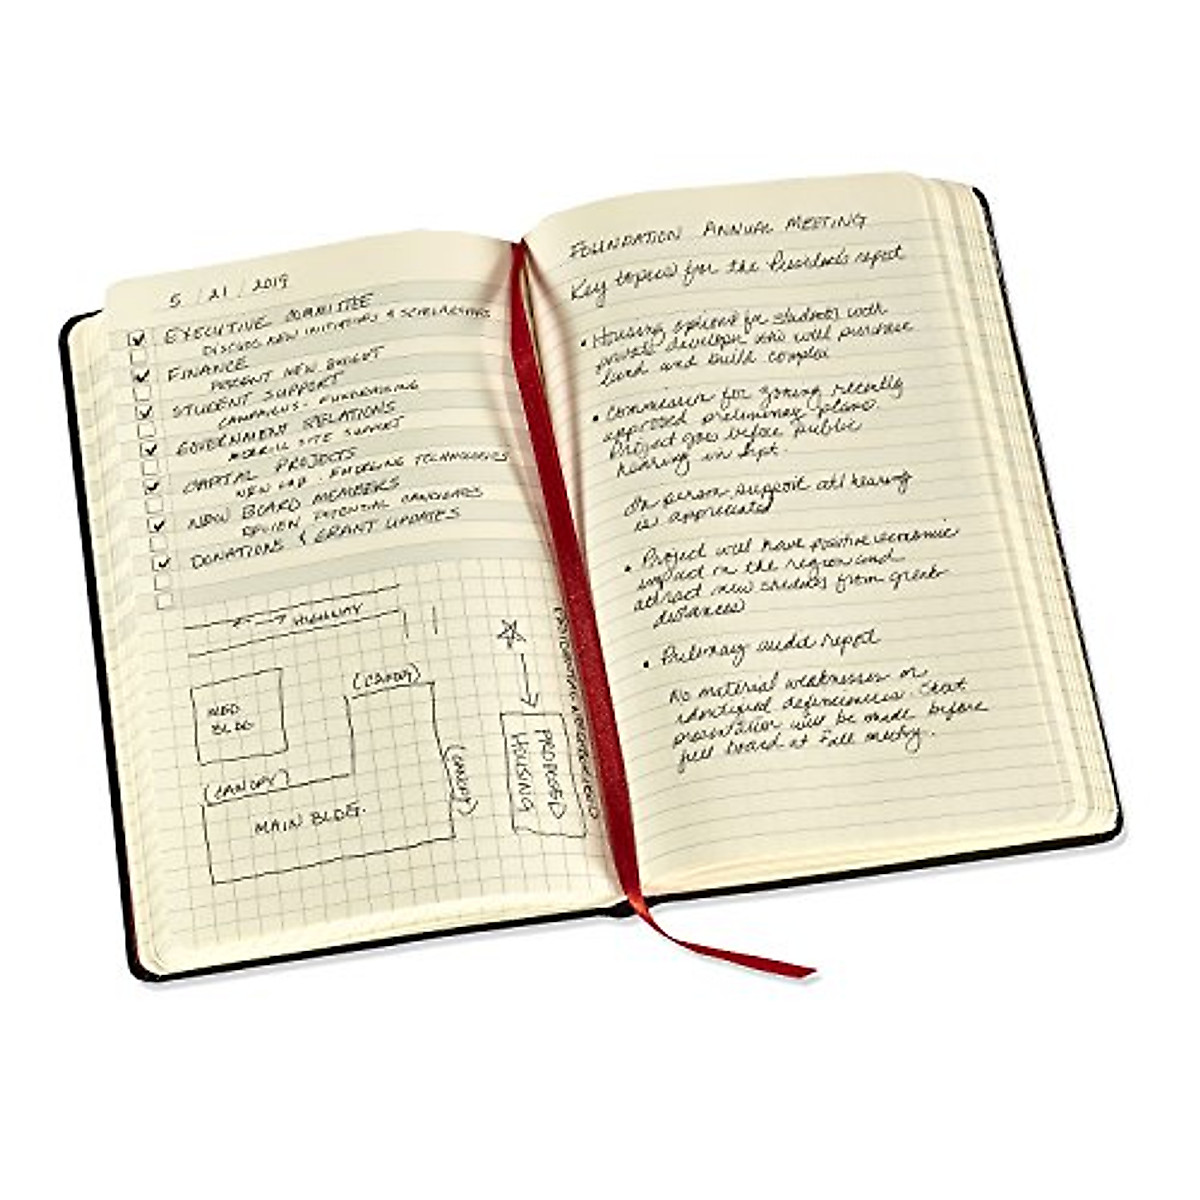 5 / 21 / 2019
EXECUTIVE COMMITTEE
DISCUSS NEW INITIATIVES & SCHOLARSHIPS
FINANCE
PRESENT NEW BUDGET
STUDENT SUPPORT
CAMPAIGNS - FUNDRAISING
GOVERNMENT RELATIONS
SITE SUPPORT
CAPITAL PROJECTS
NEW LAB - EMERGING TECHNOLOGIES
NEW BOARD MEMBERS
REVIEW POTENTIAL CANDIDATES
DONATIONS & GRANT UPDATES
HIGHWAY
(CANOPY)
MED
BLDG
(CANOPY)
(CANOPY)
MAIN BLDG.
PROPOSED
HOUSING
FOUNDATION ANNUAL MEETING
Key topics for the President's report
• Housing options for students with
private developer who will purchase
land and build complex
• Commission for zoning recently
approved preliminary plans.
Project goes before public
hearing in Sept.
In person support at hearing
is appreciated
• Project will have positive economic
impact on the region and
attract new students from great
distances
• Preliminary audit report
No material weaknesses or
identified deficiencies.
presentation will be made before
full board at Fall meeting.